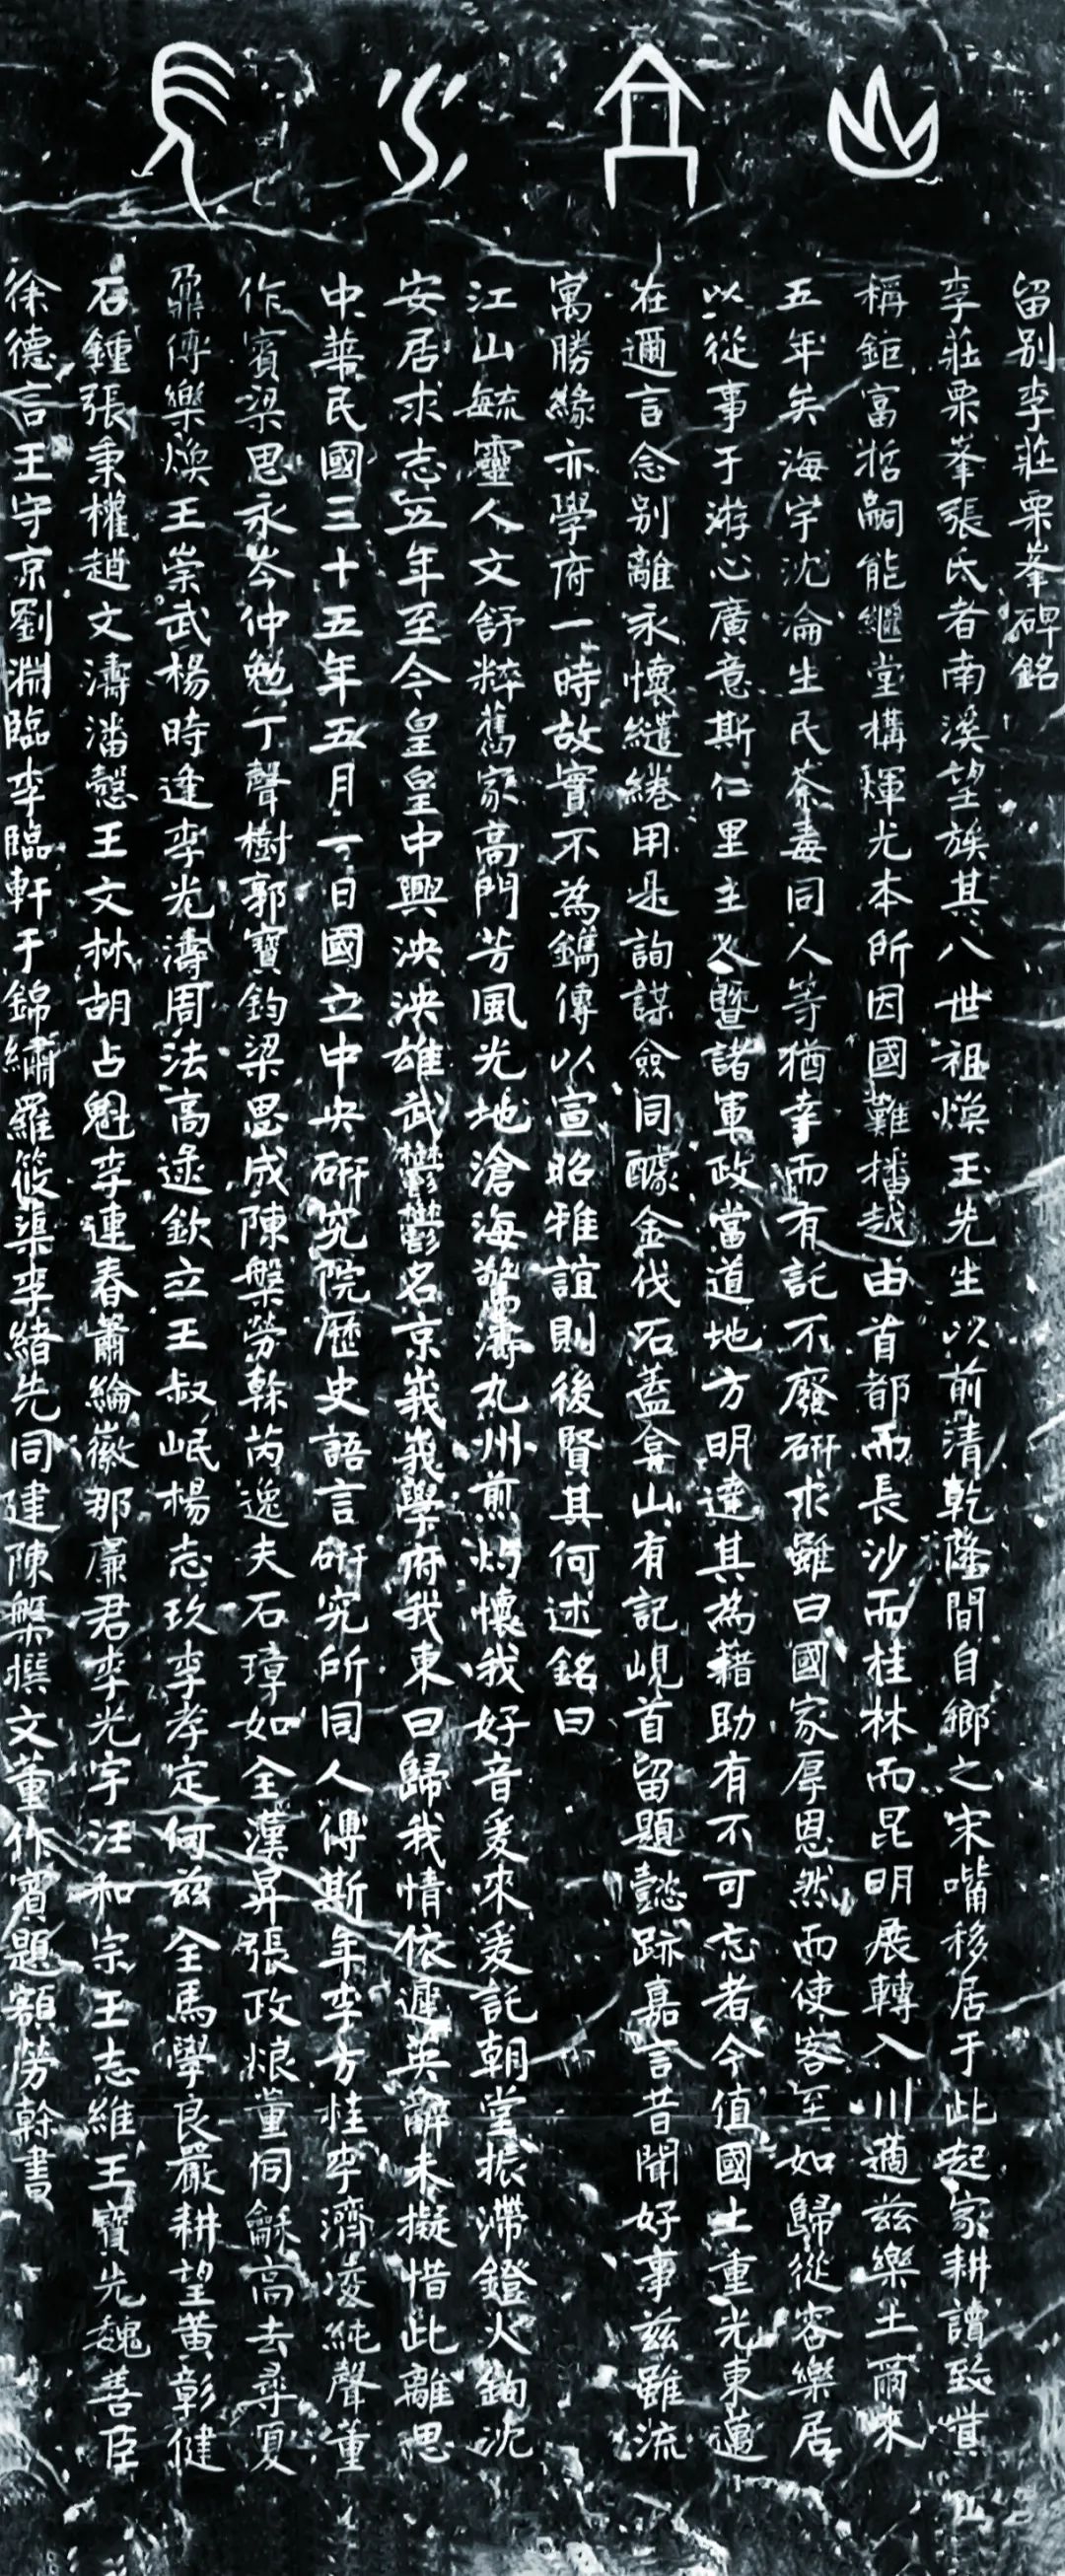 山高水長
留别李莊栗峯碑銘
李莊栗峯張氏者南溪望族其八世祖煥玉先生以前清乾隆間自鄉之宋嘴移居于此起家耕讀致貲
稱鉅富哲嗣能繼堂構輝光本所因國難播越由首都而長沙而桂林而昆明展轉入川適兹樂土爾來
五年矣海宇沈淪生民荼毒同人等猶幸而有託不廢研求雖曰國家厚恩然而使客至如歸從容樂居
以從事于游心廣意斯仁里主人暨諸軍政當道地方明達其為藉助有不可忘者今值國土重光東邁
在邇言念别離永懷繾綣用是詢謀僉同醵金伐石盖弇山有記峴首留題懿跡嘉言昔聞好事兹雖流
寓勝緣亦學府一時故實不為鐫傳以宣昭雅誼則後賢其何述銘曰
江山毓靈人文舒粹舊家高門芳風光地滄海驚濤九州煎灼懷我好音爰來爰託朝堂振滯鐙火鉤沈
安居求志五年至今皇皇中興泱泱雄武鬱鬱名京峩峩學府我東曰歸我情依遲英辭未擬惜此離思
中華民國三十五年五月一日國立中央研究院歷史語言研究所同人傅斯年李方桂李濟凌純聲董
作賓梁思永岑仲勉丁聲樹郭寶鈞梁思成陳槃勞榦芮逸夫石璋如全漢昇張政烺董同龢高去尋夏
鼐傅樂煥王崇武楊時逢李光濤周法高逯欽立王叔岷楊志玖李孝定何兹全馬學良嚴耕望黄彰健
石鍾張秉權趙文濤潘慤王文林胡占魁李連春蕭綸徽那廉君李光宇汪和宗王志維王寶先魏善臣
徐德言王守京劉淵臨李臨軒于錦繡羅筱蕖李緒先同建陳槃撰文董作賓題額勞榦書